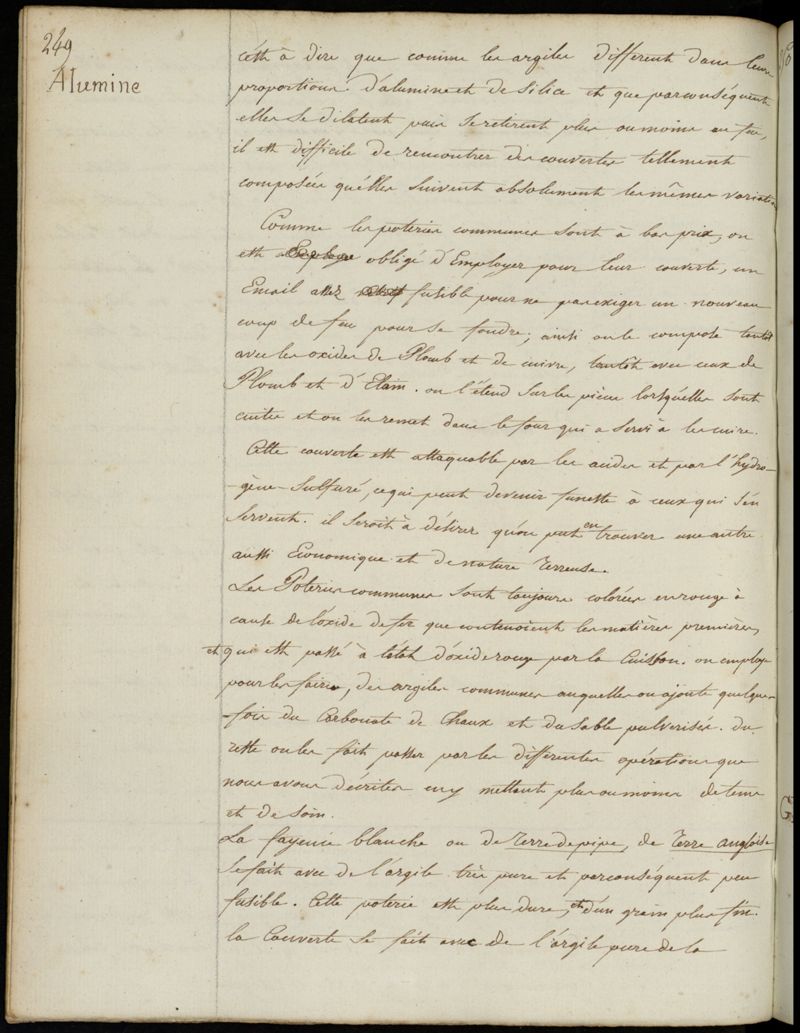 249
Alumine
c'est à dire que comme les argiles different dans leurs
proportions d'alumine et de Silice et que par conséquent
elles Se dilatent puis Se retirent plus ou moins au feu,
il est difficile de rencontrer des couvertes tellement
composées qu'elles Suivent absolument les mêmes variations
Comme les poteries communes Sont à bas prix, on
est obligé d'Employer pour leur couverte, un
Email assez fusible pour ne pas exiger un nouveau
coup de feu pour se fondre; ainsi on le compose tantôt
avec les oxides de Plomb et de cuivre, tantôt avec ceux de
Plomb et d'Etain. on l'étend Sur les pièces lorsqu'elles Sont
cuites et on les remet dans le four qui a Servi à les cuire.
Cette couverte est attaquable par les acides et par l'hydro-
-gène-Sulfuré, ce qui peut devenir funeste à ceux qui S'en
Servent. il Seroit à désirer qu'on put en trouver une autre
aussi Economique et de nature terreuse.
Les Poteries communes Sont toujours colorées en rouge à
cause de l'oxide de fer que contenoient les matières premières,
et qui est passé à l'état d'oxide rouge par la Cuisson. on emploie
pour les faire, des argiles communes auxquelles on ajoute quelque-
-fois du Carbonate de Chaux et du Sable pulverisés. du
reste on les fait passer par les differentes opérations que
nous avons décrites en y mettant plus ou moins de tems
et de Soin.
La fayence blanche ou de Terre de pipe, de Terre angloise
Se fait avec de l'argile très pure et par conséquent peu
fusible. Cette poterie est plus dure, et d'un grain plus fin.
la Couverte Se fait avec de l'argile pure de la